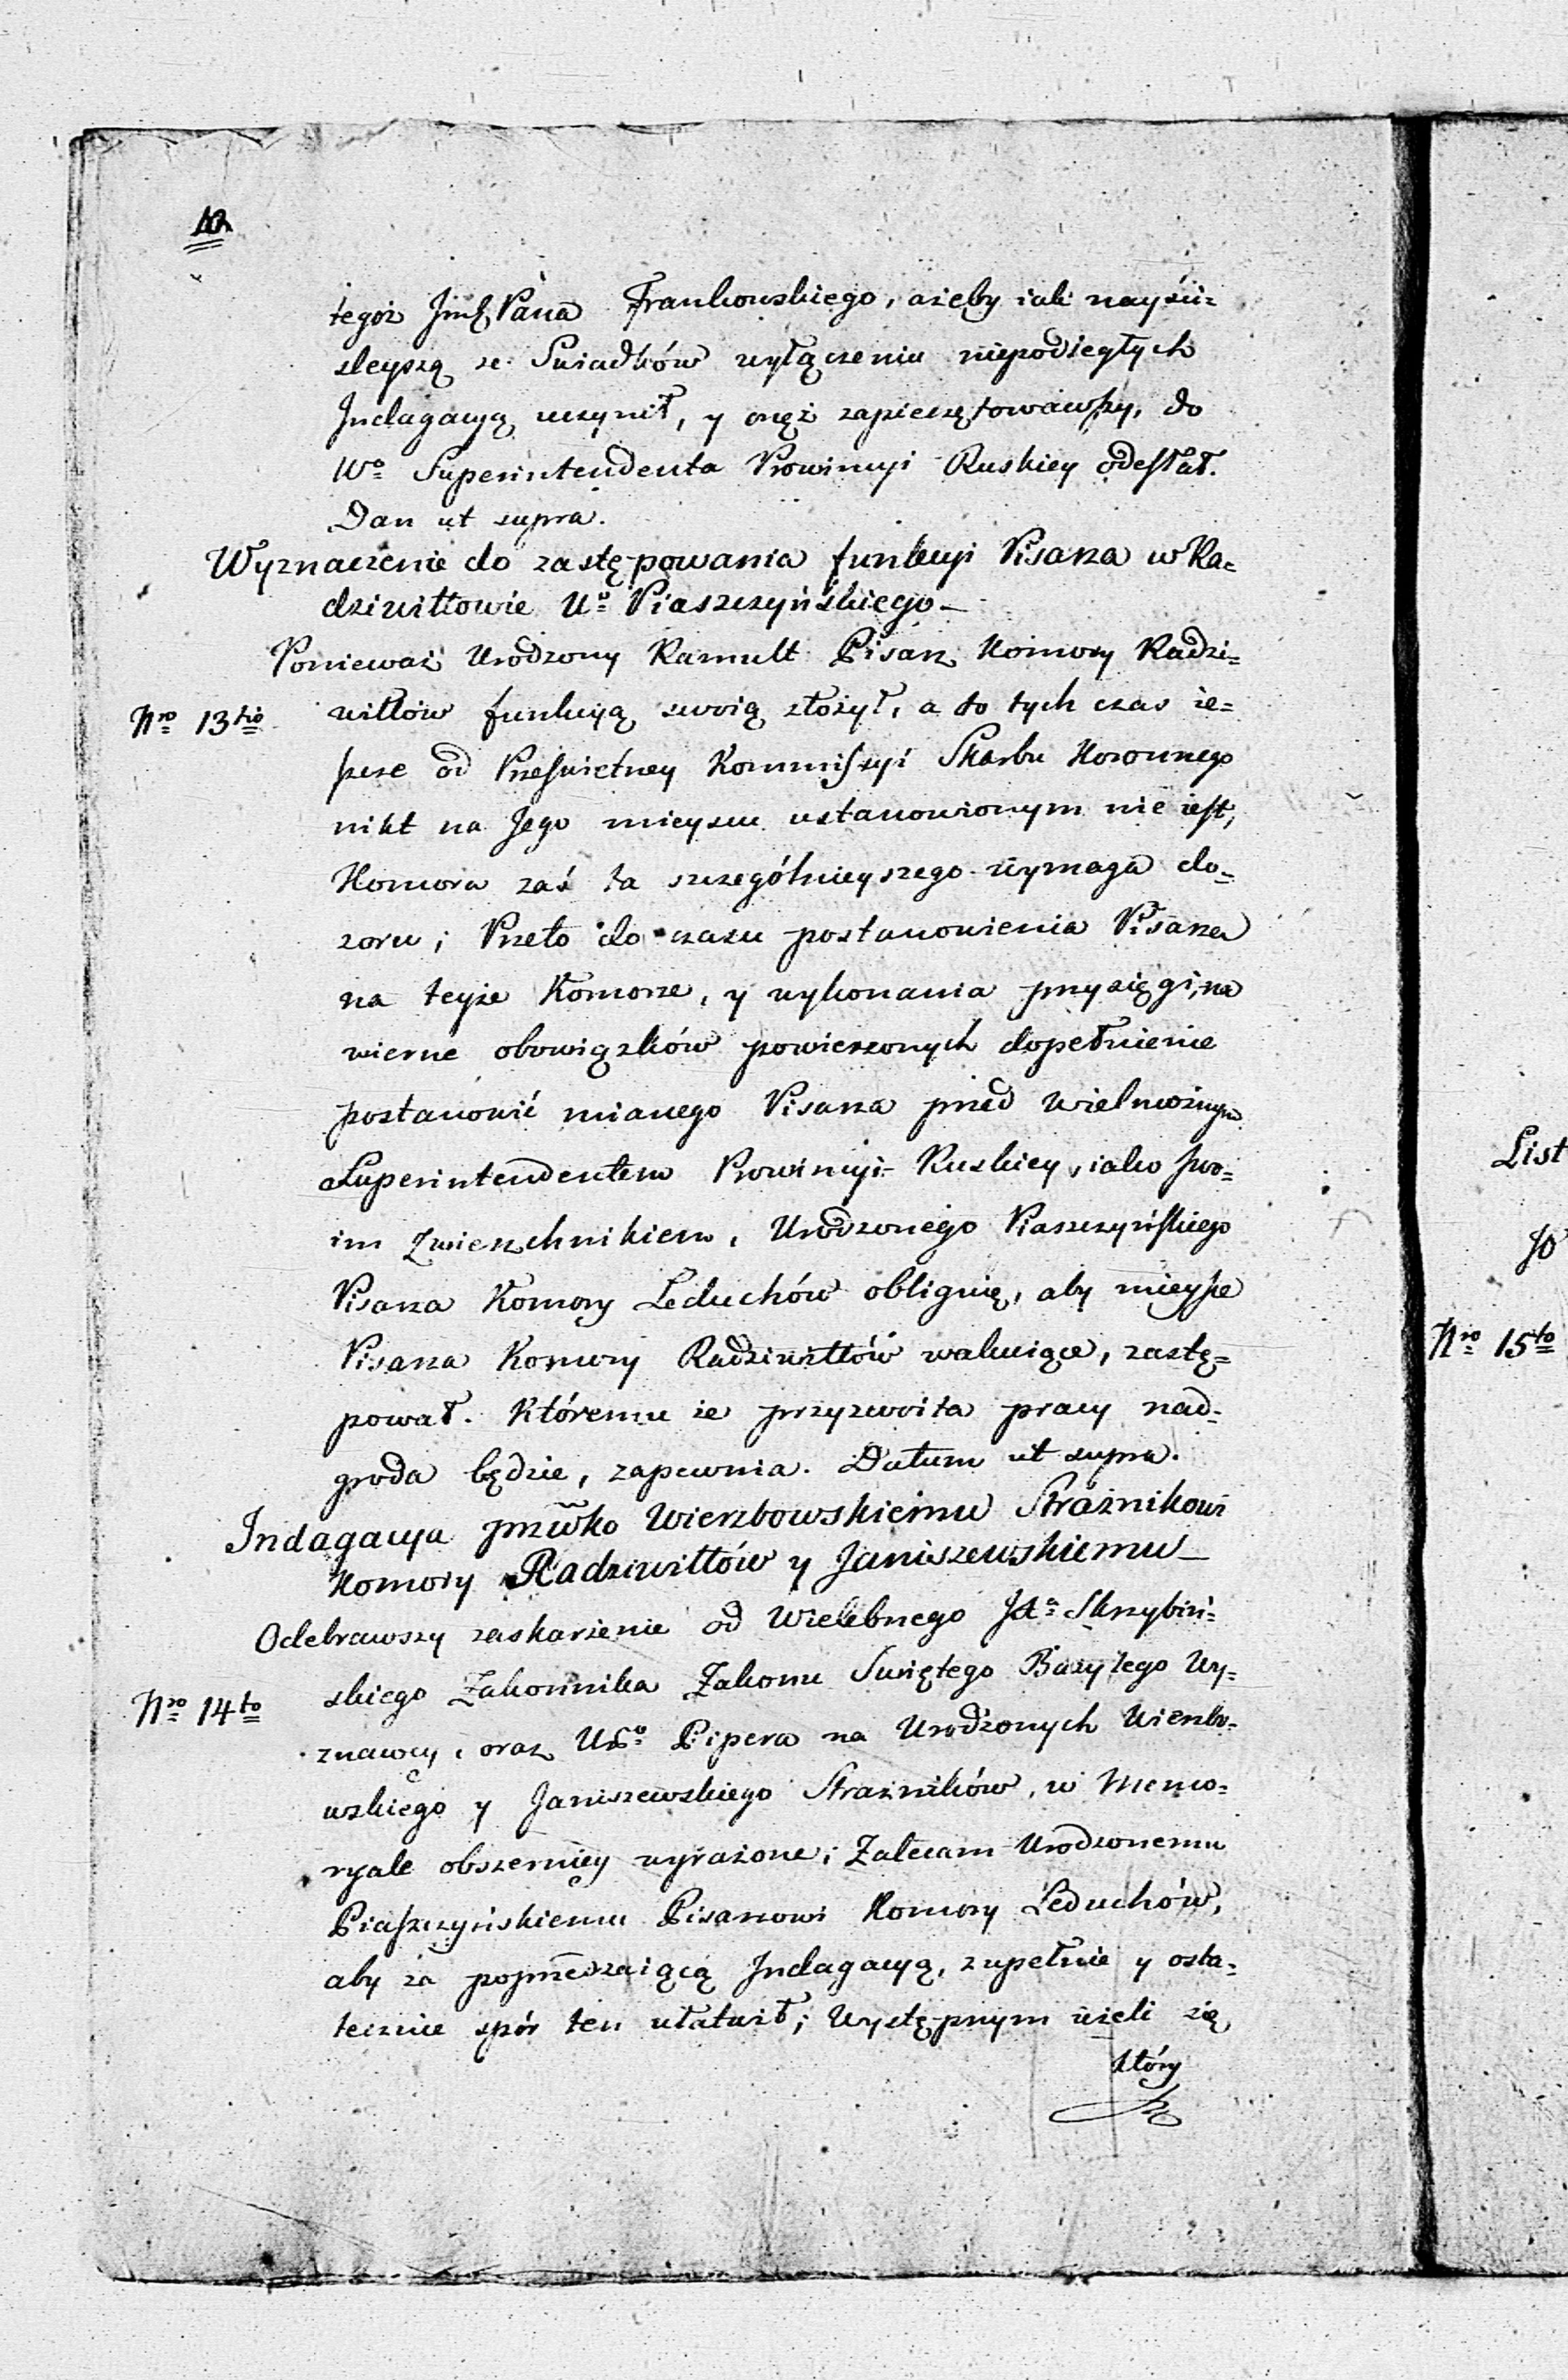 10
tegoż Jmć Pana Frankowskiego, ażeby iak nayści-
sleyszą ze Swiadków wyłączeniu niepodległych
Indagacyą uczynił, y onęż zapieczętowawszy, do
Wo Superintendenta Prowincyi Ruskiey odesłał.
Dan ut supra.
Wyznaczenie do zastępowania funkcyi Pisarza w Ra-
dziwiłłowie Uo Piaszczyńskiego
Ponieważ Urodzony Ramult Pisarz Komory Radzi-
Nro 13tio
wiłłów funkcyą swoią złożył, a do tych czas ie-
szcze od Prześwietney Kommissyi Skarbu Koronnego
nikt na Jego mieyscu ustanowionym nie iest,
Komora zaś ta szczególnieyszego wymaga do-
zoru; Przeto do czasu postanowienia Pisarza
na teyże Komorze, y wykonania przysięgi, na
wierne obowiązków powierzonych dopełnienie
postanowić mianego Pisarza przed Wielmożnym
Superintendentem Prowincyi Ruskiey, iako swo-
im Zwierzchnikiem, Urodzonego Piaszczyńskiego
Pisarza Komory Leduchów obliguię, aby mieysce
Pisarza Komory Radziwiłłów wakuiące, zastę-
pował. Któremu że przyzwoita pracy nad-
groda będzie, zapewnia. Datum ut supra.
Indagacya przwko Wierzbowskiemu Strażnikowi
Komory Radziwiłłów y Janiszewskiemu
Odebrawszy zaskarżenie od Wielebnego Skrzybiń-
Nro 14to
skiego Zakonnika Zakonu Swiętego Bazylego Wy-
znawcy, oraz Pipera na Urodzonych Wierzbo-
wskiego y Janiszewskiego Strażników, w Memo-
ryale obszerniey wyrażone; Zalecam Urodzonemu
Piaszczyńskiemu Pisarzowi Komory Leduchów,
aby za poprzedzaiącą Indagacyą, zupełnie y osta-
tecznie spór ten ułatwił; Występnym ieżeli się
który
List
Nro 15to